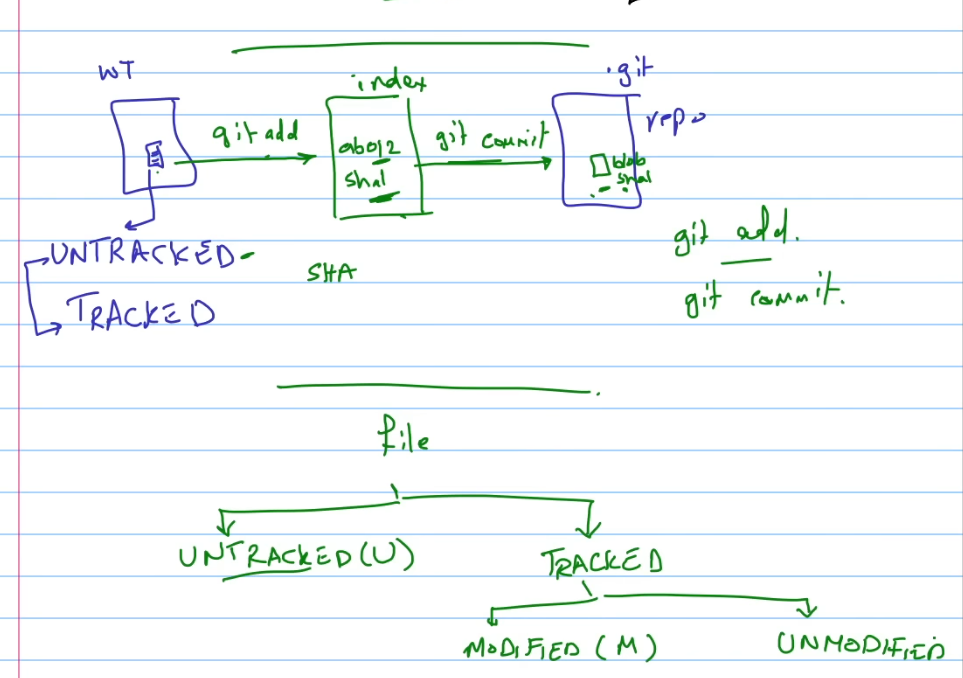 WT
index
.git
repo
git add
git commit
ab012
sha1
blob
sha1
UNTRACKED
TRACKED
SHA
git add.
git commit.
file
UNTRACKED (U)
TRACKED
MODIFIED (M)
UNMODIFIED